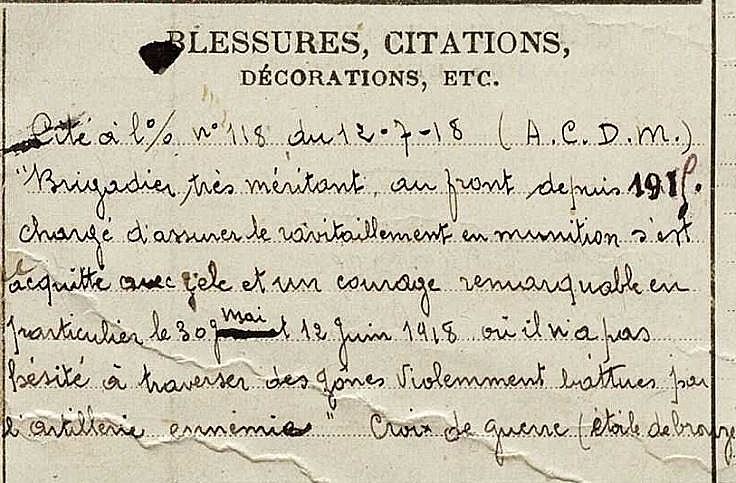 BLESSURES, CITATIONS,
DÉCORATIONS, ETC.
Cité à l'o/ n° 118 du 12-7-18 (A.C.D.M.)
"Brigadier, très méritant, au front depuis 1915.
chargé d'assurer le ravitaillement en munition s'est
acquitté avec zèle et un courage remarquable en
particulier le 30 mai et 12 Juin 1918 où il n'a pas
hésité à traverser des zônes violemment battues par
l'artillerie ennemie" Croix de guerre (étoile de bronze